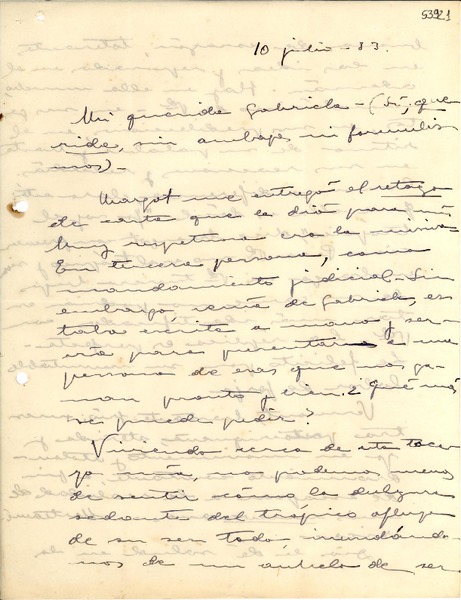 53921
10 julio - 53.
Mi querida Gabriela - (Sí, que
rida, sin ambajes ni formulis
mos) -
Margot me entregó el retazo
de carta que le dió para mí.
Muy respetuosa era la misiva
En tercera persona, como
mandamiento judicial. Sin
embargo, señá de Gabriela, es
taba escrita a mano y ser
vía para presentar a una
persona de esas que nos ga
nan pronto y bien. ¿Qué más
se puede pedir?
Viviendo cerca de esta toca
ya mía, no podemos menos
de sentir cómo la dulzura
sedante del trópico afluye
de su ser todo, inundándo
nos de un anhelo de ser